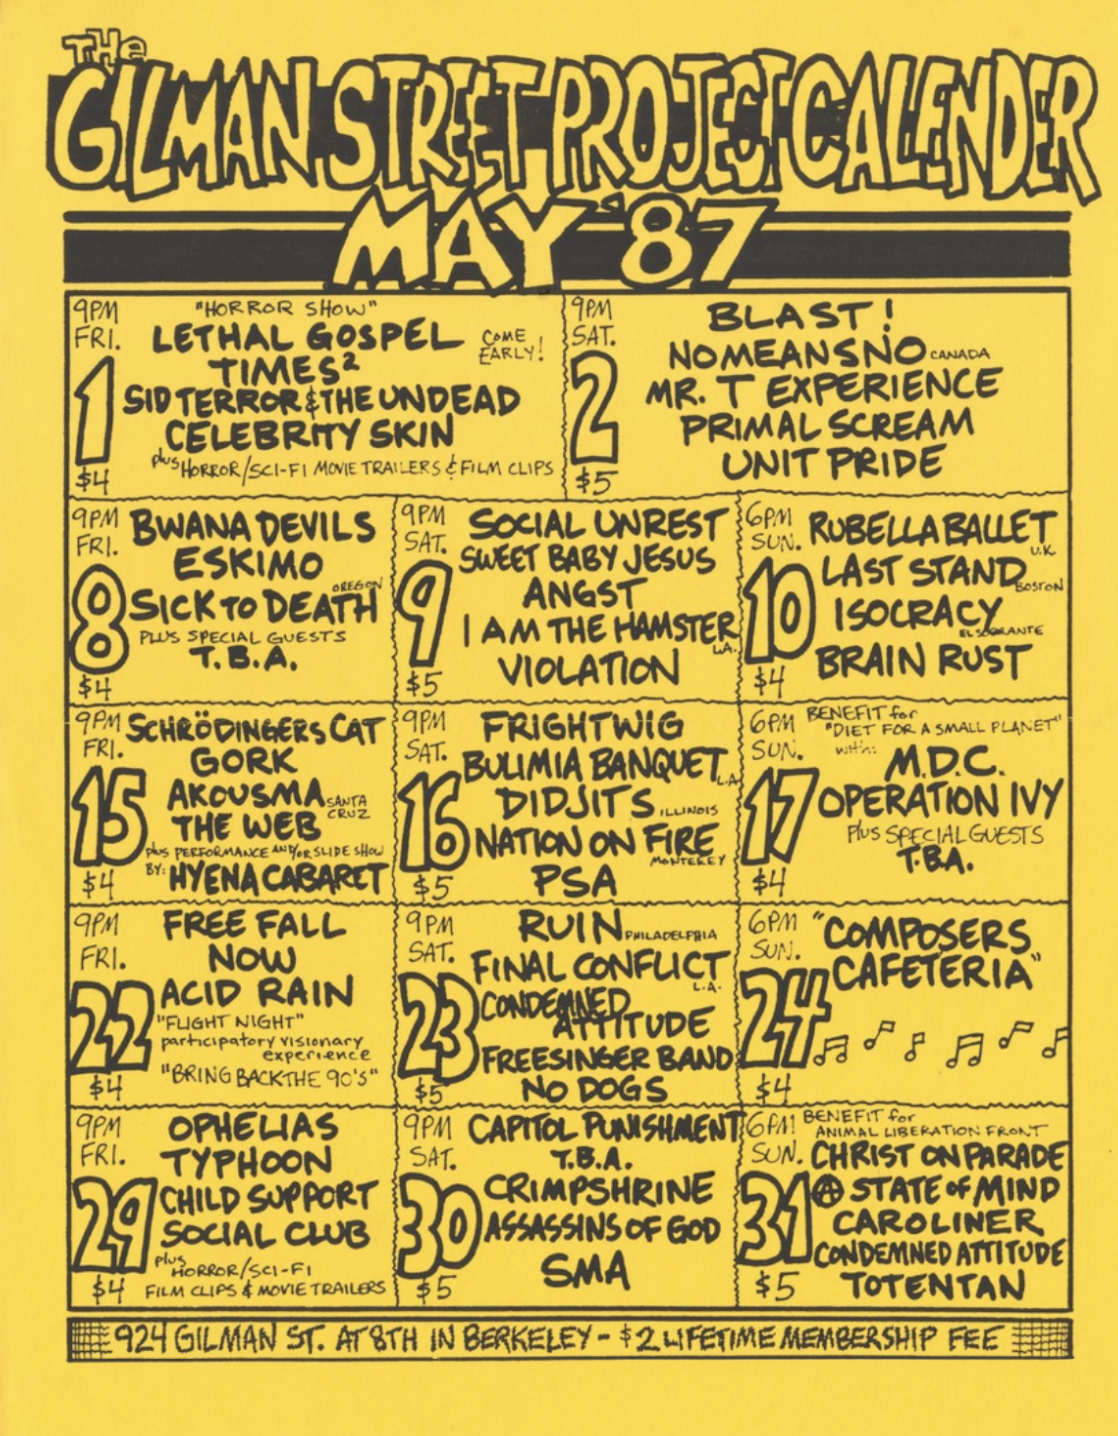 THe
GILMAN STREET PROJECT CALENDER
MAY '87
9PM
FRI.
1
$4
"HORROR SHOW"
LETHAL GOSPEL
COME
EARLY!
TIMES²
SID TERROR & THE UNDEAD
CELEBRITY SKIN
plus HORROR/SCI-FI MOVIE TRAILERS & FILM CLIPS
9PM
SAT.
2
$5
BLAST!
NOMEANSNO CANADA
MR. T EXPERIENCE
PRIMAL SCREAM
UNIT PRIDE
9PM
FRI.
8
$4
BWANA DEVILS
ESKIMO
OREGON
SICK TO DEATH
PLUS SPECIAL GUESTS
T.B.A.
9PM
SAT.
9
$5
SOCIAL UNREST
SWEET BABY JESUS
ANGST
I AM THE HAMSTER
L.A.
VIOLATION
6PM
SUN.
10
$4
RUBELLA BALLET
U.K
LAST STAND
BOSTON
ISOCRACY
EL SOBRANTE
BRAIN RUST
9PM
FRI.
15
$4
SCHRÖDINGERS CAT
GORK
AKOUSMA SANTA
CRUZ
THE WEB
plus PERFORMANCE AND/OR SLIDE SHOW
BY: HYENA CABARET
9PM
SAT.
16
$5
FRIGHTWIG
BULIMIA BANQUET L.A.
DIDJITS ILLINOIS
NATION ON FIRE
MONTEREY
PSA
6PM
SUN.
17
$4
BENEFIT for
"DIET FOR A SMALL PLANET"
with:
M.D.C.
OPERATION IVY
Plus SPECIAL GUESTS
T.B.A.
9PM
FRI.
22
$4
FREE FALL
NOW
ACID RAIN
"FLIGHT NIGHT"
participatory visionary
experience
"BRING BACK THE 90'S"
9PM
SAT.
23
$5
RUIN PHILADELPHIA
FINAL CONFLICT
L.A.
CONDEMNED
ATTITUDE
FREESINGER BAND
NO DOGS
6PM
SUN.
24
$4
"COMPOSERS
CAFETERIA"
9PM
FRI.
29
$4
OPHELIAS
TYPHOON
CHILD SUPPORT
SOCIAL CLUB
plus
HORROR/SCI-FI
FILM CLIPS & MOVIE TRAILERS
9PM
SAT.
30
$5
CAPITOL PUNISHMENT
T.B.A.
CRIMPSHRINE
ASSASSINS OF GOD
SMA
6PM
SUN.
31
$5
BENEFIT for
ANIMAL LIBERATION FRONT
CHRIST ON PARADE
Ⓐ STATE of MIND
CAROLINER
CONDEMNED ATTITUDE
TOTENTAN
924 GILMAN ST. AT 8TH IN BERKELEY - $2 LIFETIME MEMBERSHIP FEE